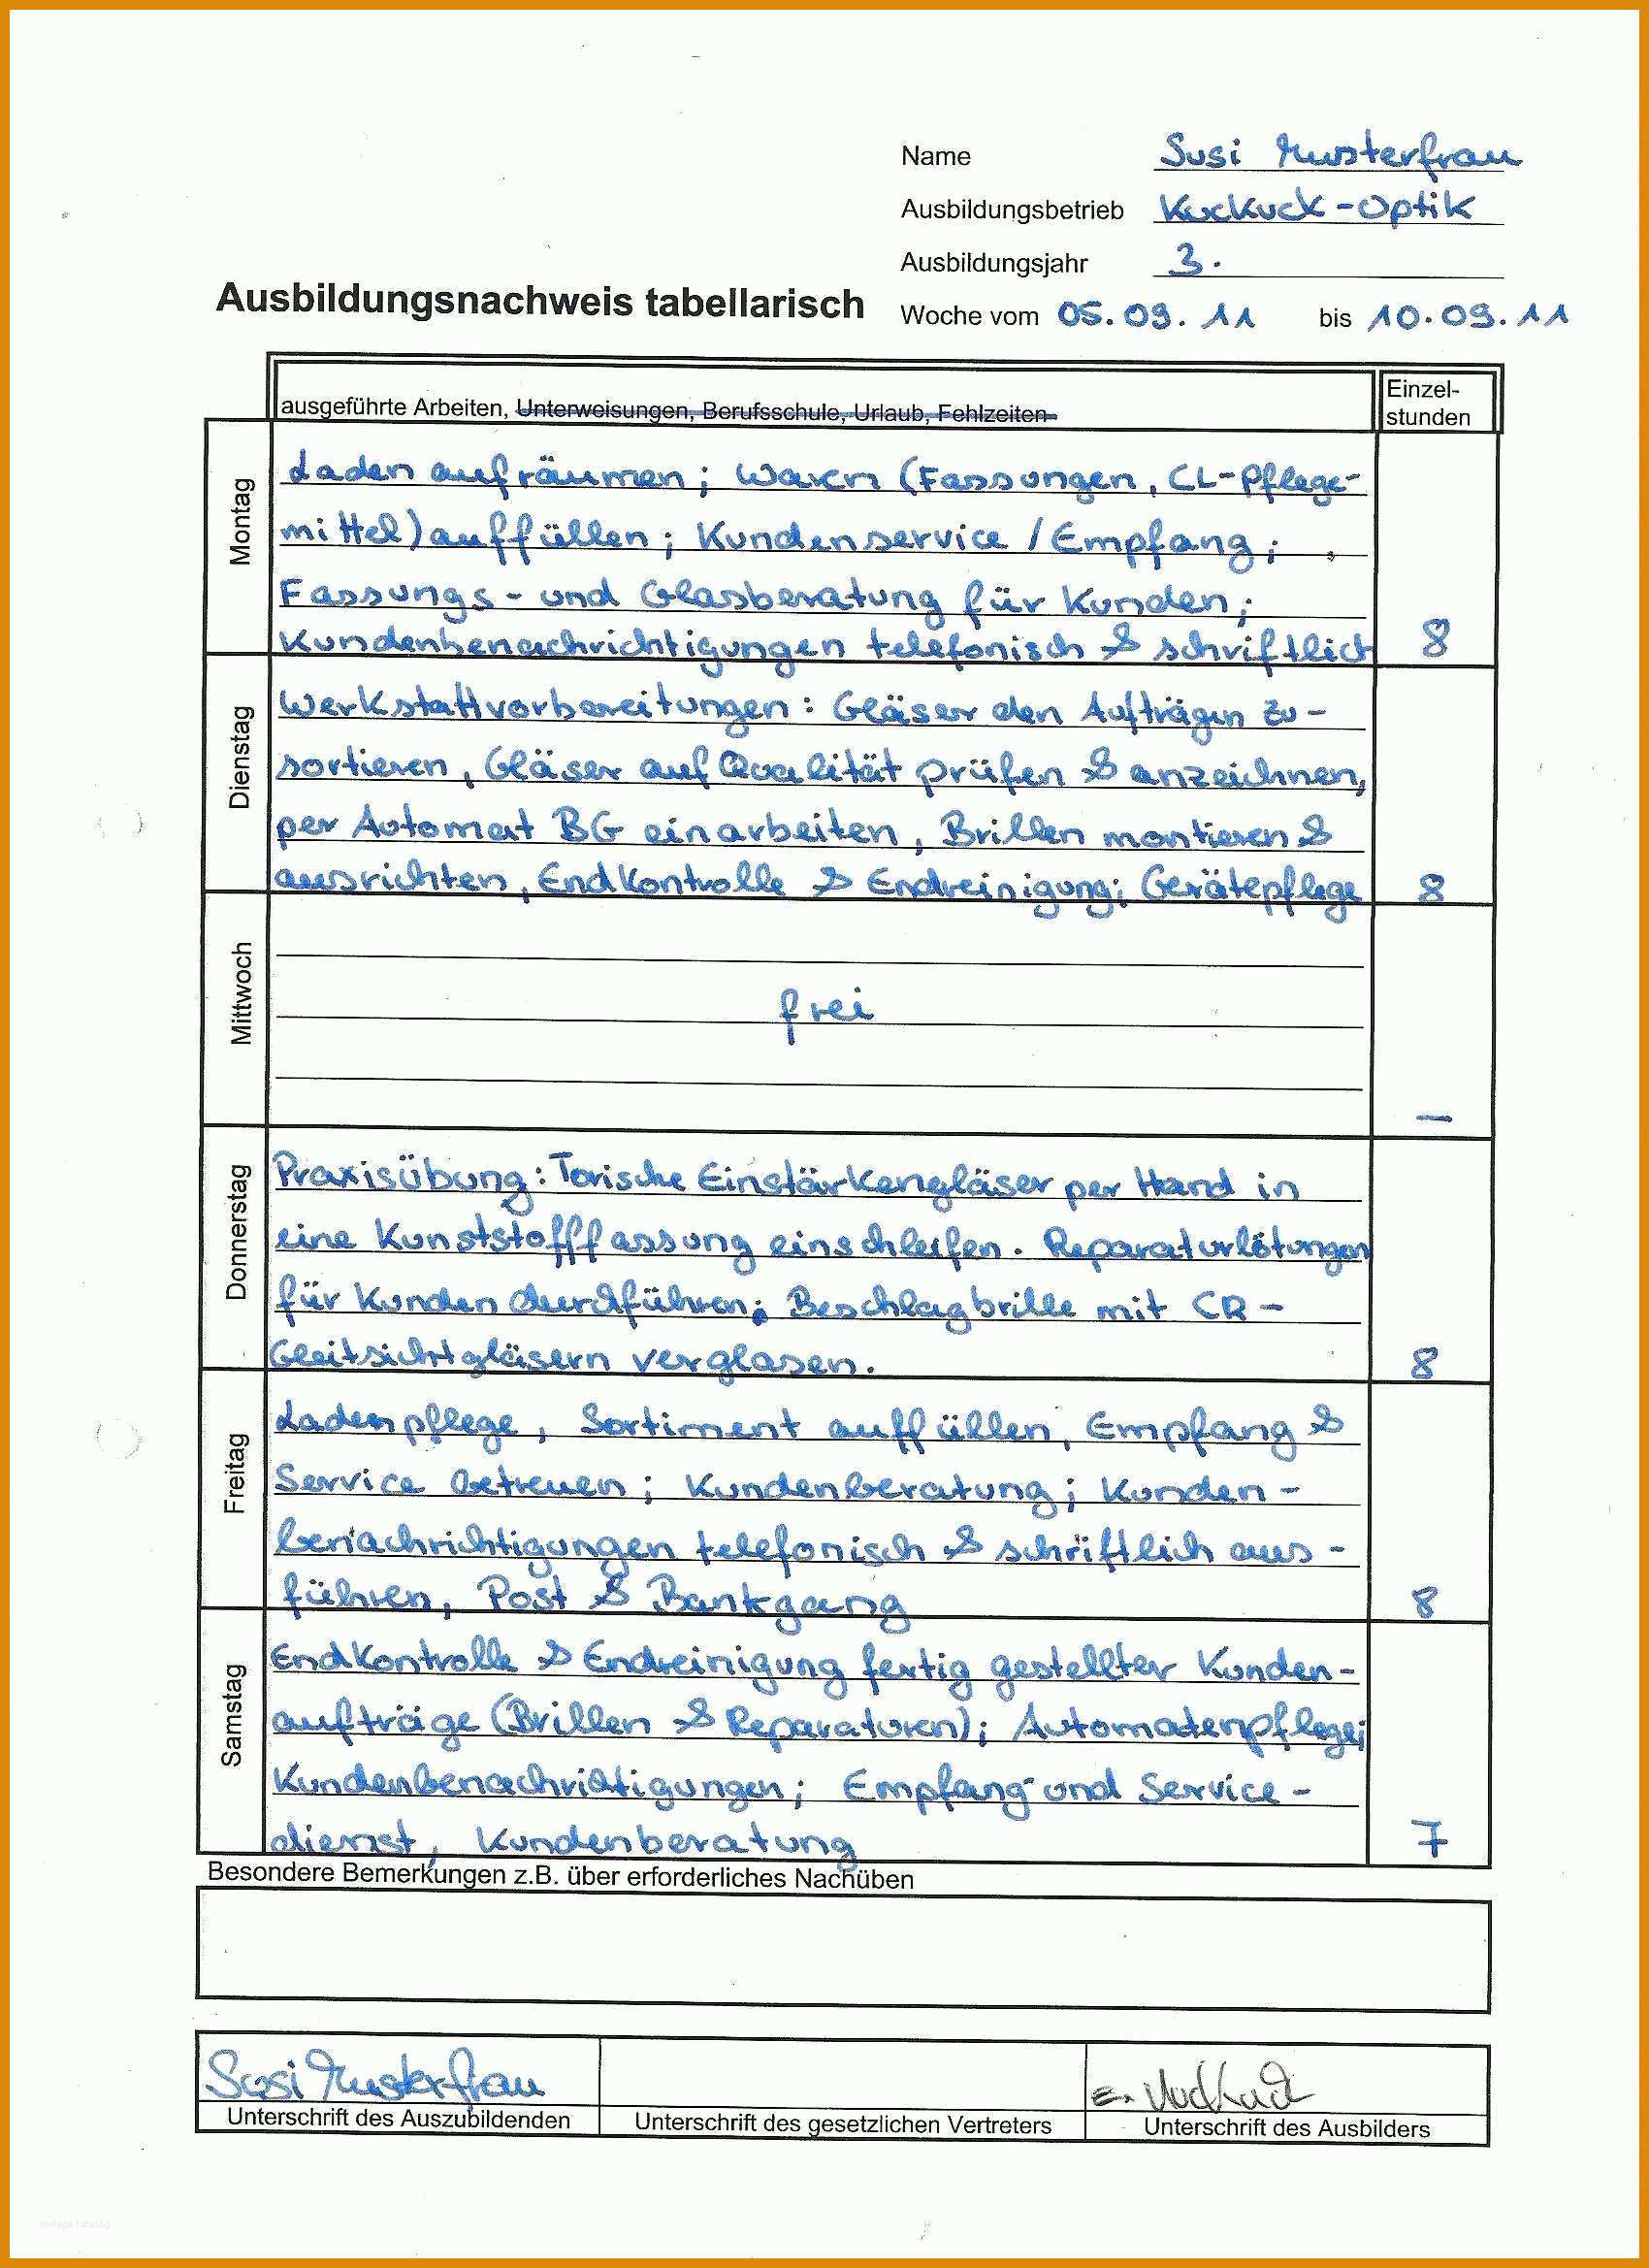 Name Susi Musterfrau
Ausbildungsbetrieb Kuckuck-Optik
Ausbildungsjahr 3.
Ausbildungsnachweis tabellarisch
Woche vom 05.09.11 bis 10.09.11
ausgeführte Arbeiten, Unterweisungen, Berufsschule, Urlaub, Fehlzeiten
Einzel-
stunden
Montag
Laden aufräumen; Waren (Fassungen, CL-Pflege-
mittel) auffüllen; Kundenservice / Empfang;
Fassungs- und Glasberatung für Kunden;
Kundenbenachrichtigungen telefonisch & schriftlich
8
Dienstag
Werkstattvorbereitungen: Gläser den Aufträgen zu-
sortieren, Gläser auf Qualität prüfen & anzeichnen,
per Automat BG einarbeiten, Brillen montieren &
ausrichten, Endkontrolle & Endreinigung; Gerätepflege
8
Mittwoch
frei
—
Donnerstag
Praxisübung: Torische Einstärkengläser per Hand in
eine Kunststofffassung einschleifen. Reparaturlötungen
für Kunden durchführen; Beschlagbrille mit CR-
Gleitsichtgläsern verglasen.
8
Freitag
Ladenpflege, Sortiment auffüllen, Empfang &
Service betreuen; Kundenberatung; Kunden-
benachrichtigungen telefonisch & schriftlich aus-
führen, Post & Bankgang
8
Samstag
Endkontrolle & Endreinigung fertig gestellter Kunden-
aufträge (Brillen & Reparaturen); Automatenpflege;
Kundenbenachrichtigungen; Empfang und Service-
dienst, Kundenberatung
7
Besondere Bemerkungen z.B. über erforderliches Nachüben
Susi Musterfrau
Unterschrift des Auszubildenden
Unterschrift des gesetzlichen Vertreters
Unterschrift des Ausbilders
vorlage katalog